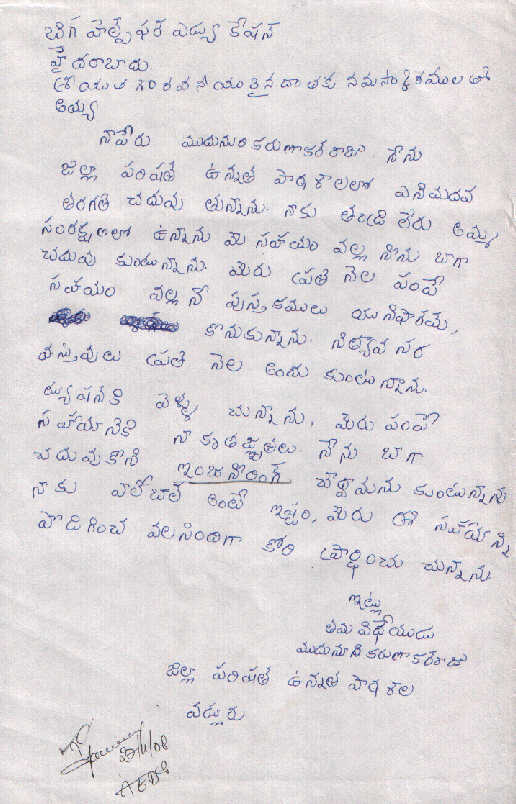 బిగ హెల్ప్ ఫర్ ఎడ్యు కేషన్
హైదరాబాదు
శ్రీ యుత గౌరవనీయులైన దాతకు నమస్కారములతో
అయ్య
నాపేరు ముదునూరి కరుణాకరరాజు నేను
జిల్లా పరిషత్ ఉన్నత పాఠశాలలో ఎనిమిదవ
తరగతి చదువు తున్నాను. నాకు తండ్రి లేరు అమ్మ
సంరక్షణలో ఉన్నాను మీ సహాయం వల్ల నేను బాగా
చదువు కుంటున్నాను. మీరు ప్రతి నెల పంపే
సహాయం వల్ల నే పుస్తకములు యూనిఫారమ్,
కొనుకున్నాను. నిత్యావసర
వస్తువులు ప్రతి నెల అందు కుంటున్నాను.
ట్యూషన్‌కి వెళ్ళు చున్నాను, మీరు పంపే
సహాయానికి నా కృతజ్ఞతలు. నేను బాగా
చదువుకొని ఇంజనీరింగ్ చేద్దామను కుంటున్నాను
నాకు వాలీబాల్ అంటే ఇష్టం, మీరు ఈ సహాయాన్ని
పొడిగించ వలసిందిగా కోరి ప్రార్థించు చున్నాను
ఇట్లు
తమ విధేయుడు
ముదునూరి కరుణాకరరాజు
జిల్లా పరిషత్ ఉన్నత పాఠశాల
వడ్లూరు